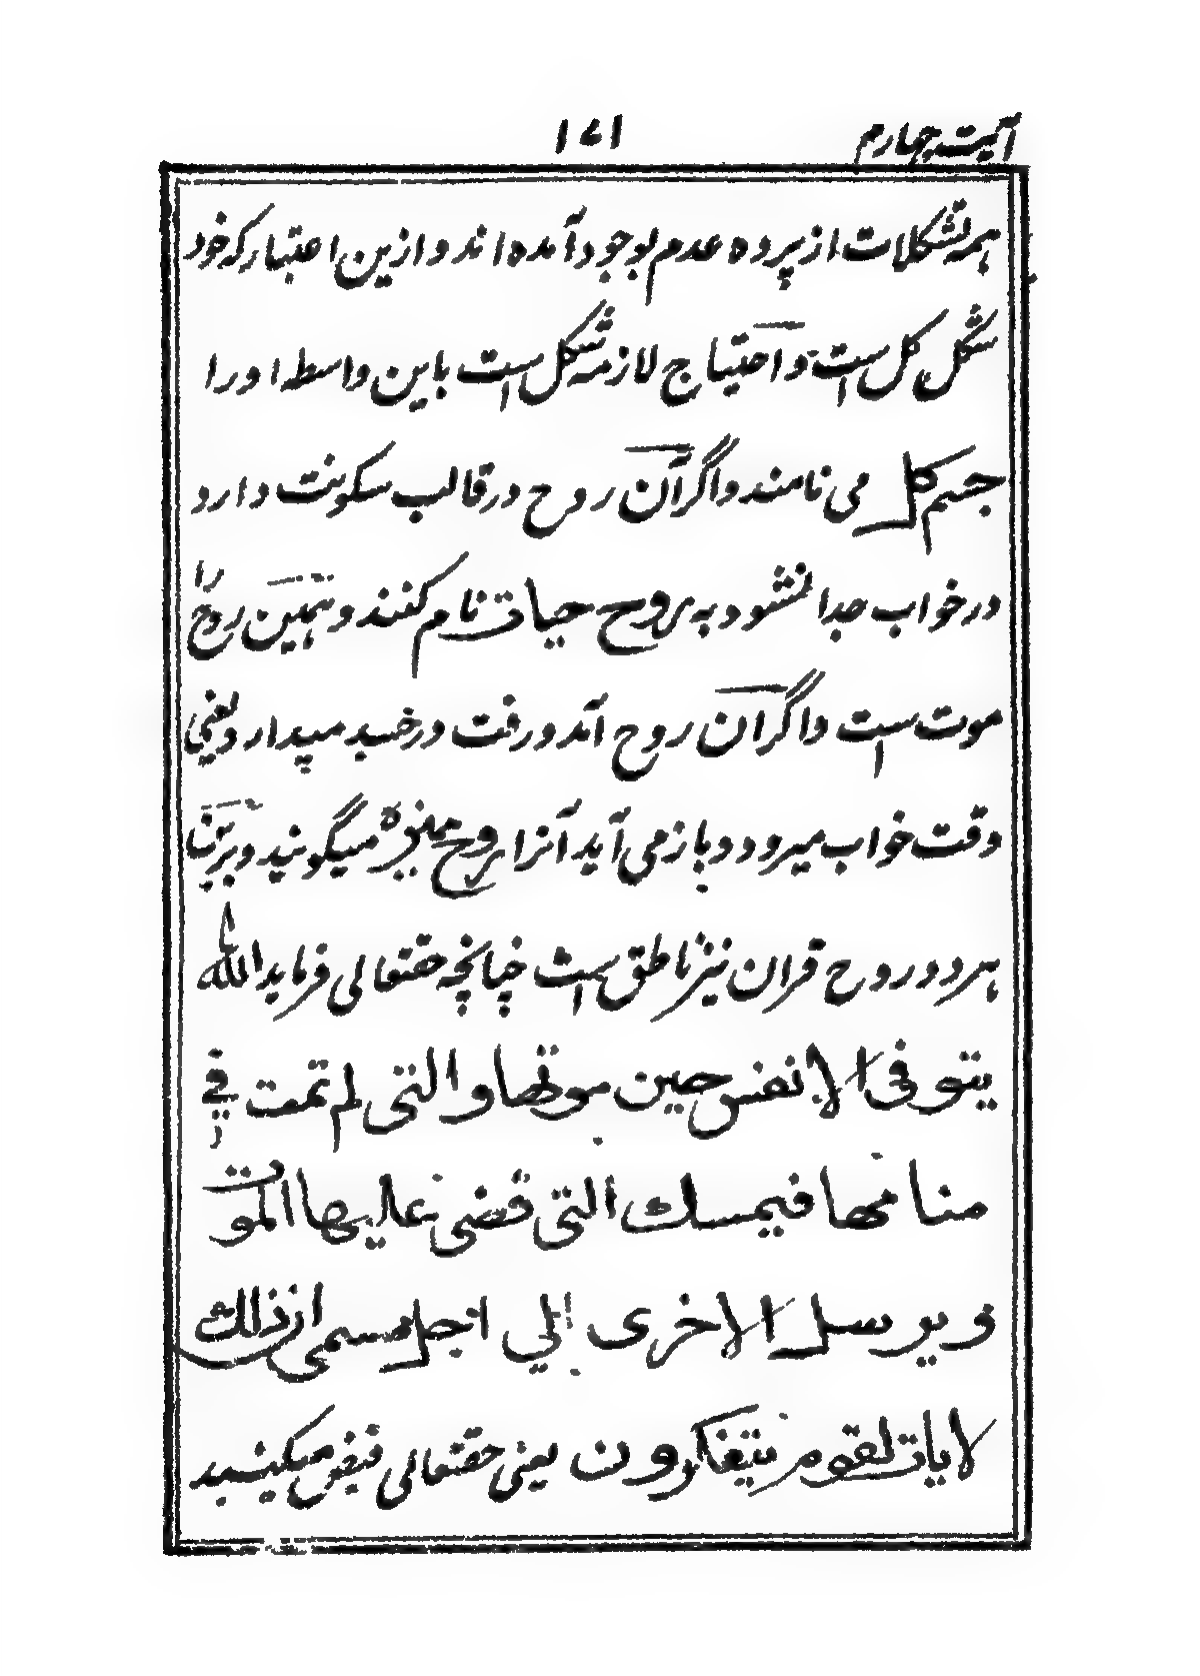 آیت چهارم ۱۷۱
همه تشکلات از پرده عدم بوجود آمده اند و ازین اعتبار که خود
شکل کل است و احتیاج لازمه شکل است باین واسطه او را
جسم کل می نامند و اگر آن روح در قالب سکونت دارد
در خواب جدا نشود به روح حیات نام کنند و همین روح را
موت است و اگر آن روح آمد و رفت در خسبد میدارد یعنی
وقت خواب میرود و باز می آید آنرا روح ممیزه میگویند و برین
هر دو روح قران نیز ناطق است چنانچه حقتعالی فرماید الله
یتوفی الانفس حین موتها والتی لم تمت فی
منامها فیمسک التی قضی علیها الموت
و یرسل الاخری الی اجل مسمی ان فی ذلک
لایات لقوم یتفکرون یعنی حقتعالی قبض میکند